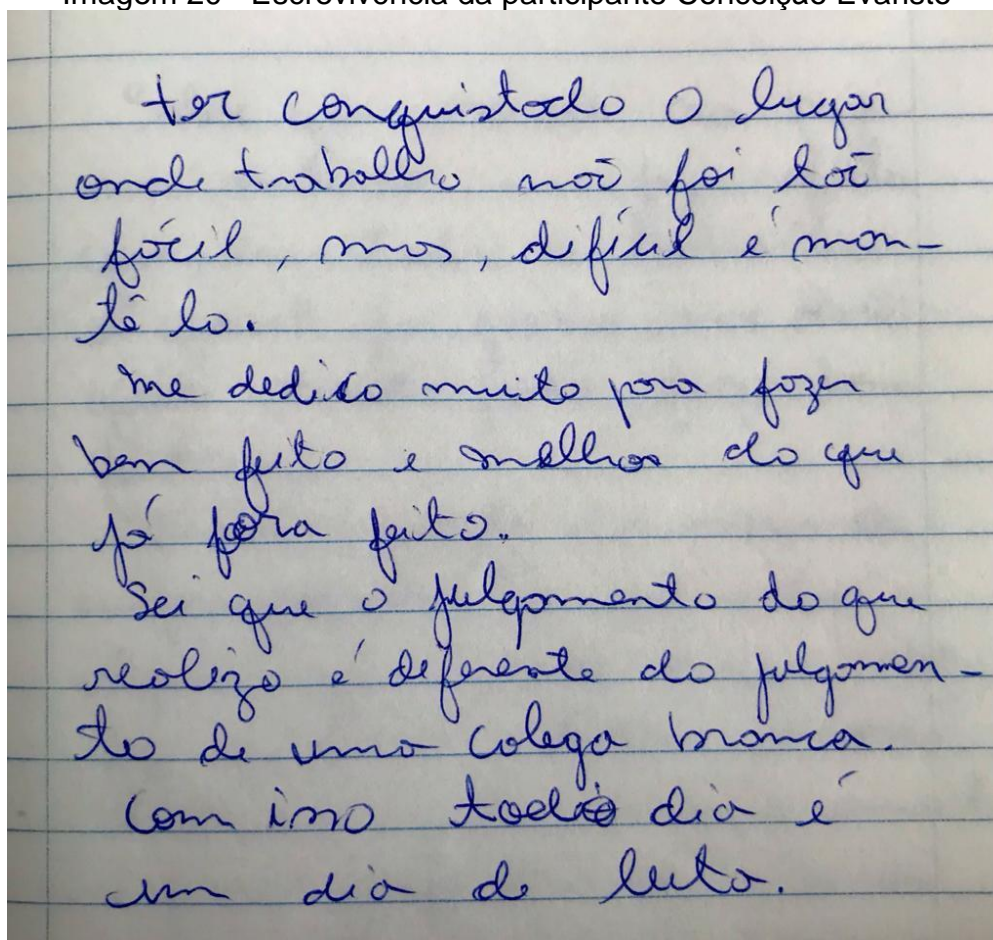 Imagem 20 - Escrevivência da participante Conceição Evaristo
ter conquistado o lugar
onde trabalho não foi tão
fácil, mas, difícil é man-
tê lo.
me dedico muito para fazer
bem feito e melhor do que
já fora feito.
Sei que o julgamento do que
realizo é diferente do julgamen-
to de uma colega branca.
Com isso todo dia é
um dia de luta.